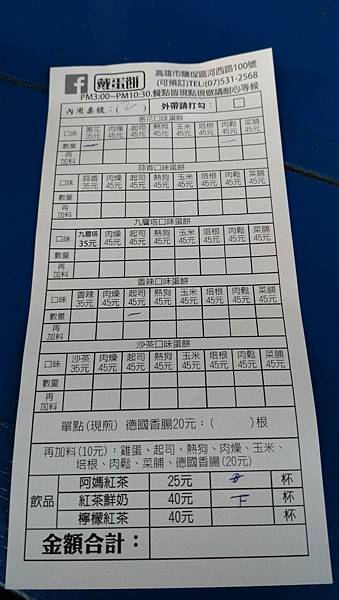 f 戴蛋餅 高雄市鹽埕區河西路100號
(可預訂)TEL:(07)531-2568
PM3:00~PM10:30.餐點皆現點現做請耐心等候
內用桌號：( 2 ) 外帶請打勾：
蔥花口味蛋餅
口味 蔥花35元 肉燥45元 起司45元 熱狗45元 玉米45元 培根45元 肉鬆45元 菜脯45元
數量 一 一
再加料
蒜香口味蛋餅
口味 蒜香35元 肉燥45元 起司45元 熱狗45元 玉米45元 培根45元 肉鬆45元 菜脯45元
數量
再加料
九層塔口味蛋餅
口味 九層塔35元 肉燥45元 起司45元 熱狗45元 玉米45元 培根45元 肉鬆45元 菜脯45元
數量
再加料
香辣口味蛋餅
口味 香辣35元 肉燥45元 起司45元 熱狗45元 玉米45元 培根45元 肉鬆45元 菜脯45元
數量 一
再加料
沙茶口味蛋餅
口味 沙茶35元 肉燥45元 起司45元 熱狗45元 玉米45元 培根45元 肉鬆45元 菜脯45元
數量
再加料
單點(現煎) 德國香腸20元：( )根
再加料(10元)：雞蛋、起司、熱狗、肉燥、玉米、
培根、肉鬆、菜脯、德國香腸(20元)
飲品
阿媽紅茶 25元 杯
紅茶鮮奶 40元 下 杯
檸檬紅茶 40元 杯
金額合計：